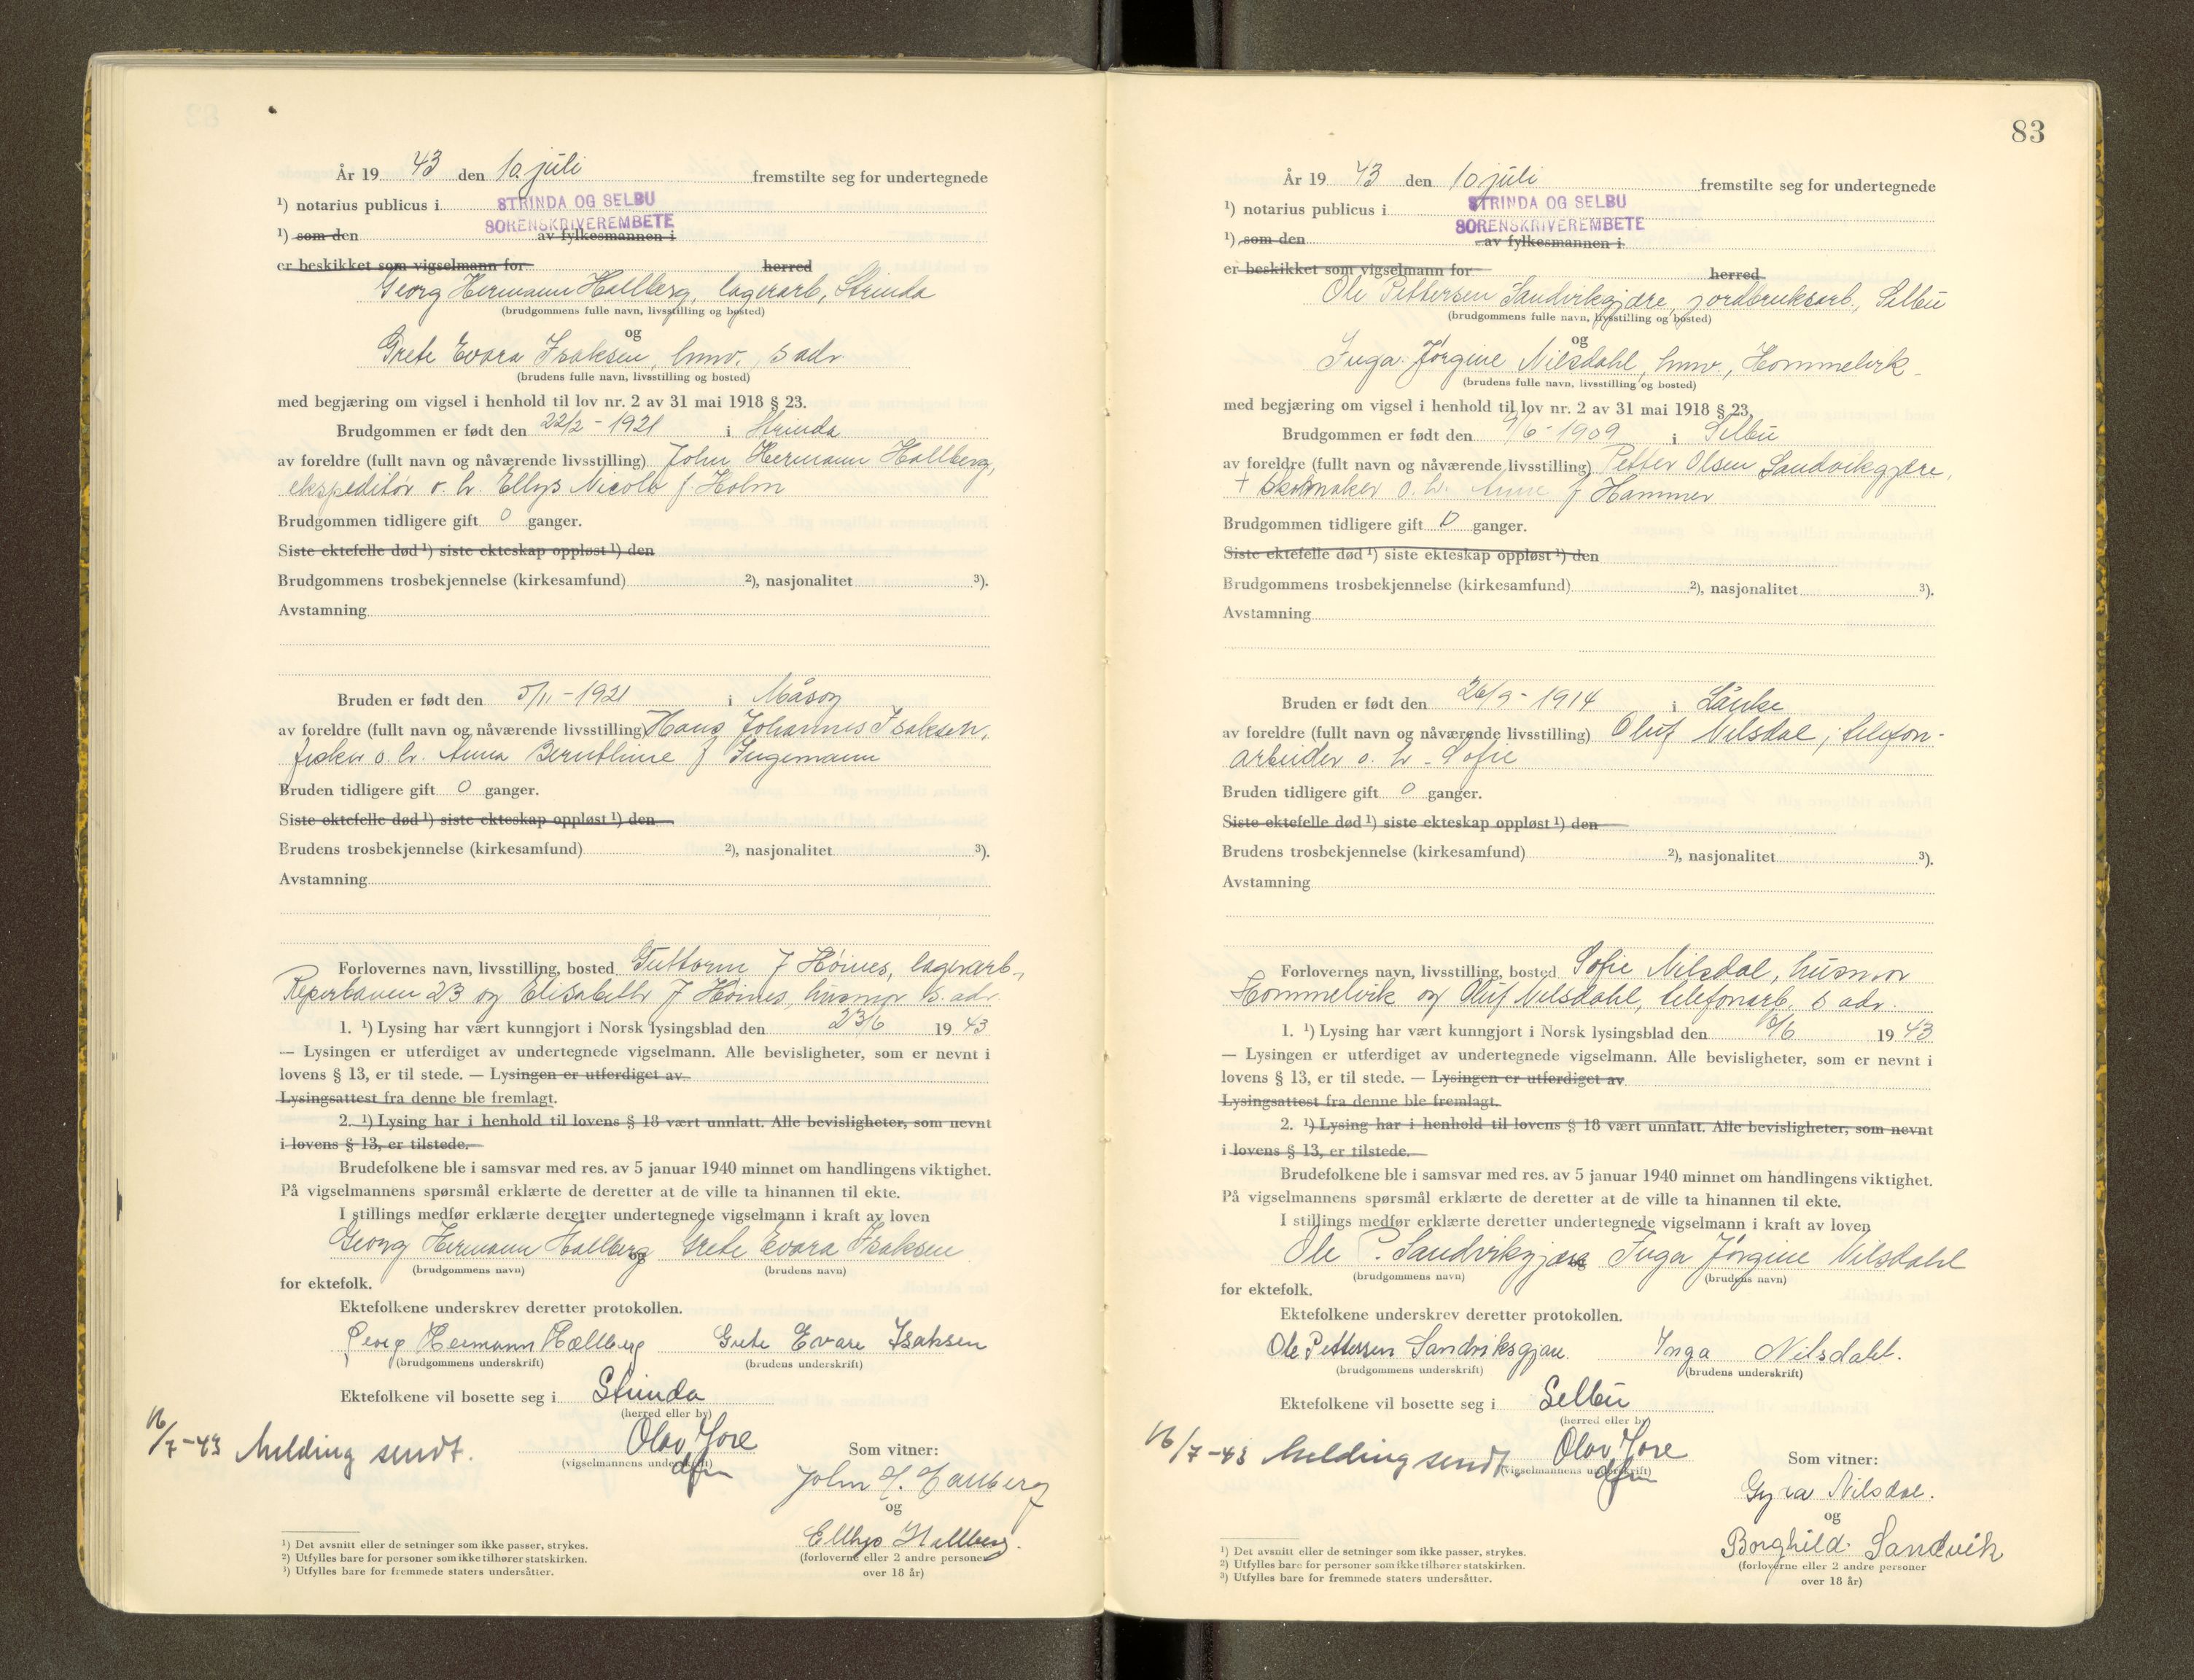 År 19 43 den 10 juli fremstilte seg for undertegnede
¹) notarius publicus i STRINDA OG SELBU
SORENSKRIVEREMBETE
¹) som den av fylkesmannen i
er beskikket som vigselmann for herred
Georg Hermann Hallberg, lagerarb, Strinda
(brudgommens fulle navn, livsstilling og bosted)
og
Grete Evara Isaksen, hmv., s adr.
(brudens fulle navn, livsstilling og bosted)
med begjæring om vigsel i henhold til lov nr. 2 av 31 mai 1918 § 23.
Brudgommen er født den 22/2 - 1921 i Strinda
av foreldre (fullt navn og nåværende livsstilling) John Hermann Hallberg,
ekspeditør o. h. Ellys Nicolo f. Holm
Brudgommen tidligere gift 0 ganger.
Siste ektefelle død ¹) siste ekteskap oppløst ¹) den
Brudgommens trosbekjennelse (kirkesamfund) ²), nasjonalitet ³).
Avstamning
Bruden er født den 5/11 - 1921 i Måsøy
av foreldre (fullt navn og nåværende livsstilling) Hans Johannes Isaksen,
fisker o. h. Anna Bernthine f Ingemann
Bruden tidligere gift 0 ganger.
Siste ektefelle død ¹) siste ekteskap oppløst ¹) den
Brudens trosbekjennelse (kirkesamfund) ²), nasjonalitet ³).
Avstamning
Forlovernes navn, livsstilling, bosted Guttorm J Høines, lagerarb.,
Reperbanen 23 og Elisabeth J Høines, husmor s. adr.
1. ¹) Lysing har vært kunngjort i Norsk lysingsblad den 23/6 19 43
— Lysingen er utferdiget av undertegnede vigselmann. Alle bevisligheter, som er nevnt i
lovens § 13, er til stede. — Lysingen er utferdiget av
Lysingsattest fra denne ble fremlagt.
2. ¹) Lysing har i henhold til lovens § 18 vært unnlatt. Alle bevisligheter, som nevnt
i lovens § 13, er tilstede.
Brudefolkene ble i samsvar med res. av 5 januar 1940 minnet om handlingens viktighet.
På vigselmannens spørsmål erklærte de deretter at de ville ta hinannen til ekte.
I stillings medfør erklærte deretter undertegnede vigselmann i kraft av loven
Georg Hermann Hallberg og Grete Evara Isaksen
(brudgommens navn) (brudens navn)
for ektefolk.
Ektefolkene underskrev deretter protokollen.
Georg Hermann Hallberg Grete Evara Isaksen
(brudgommens underskrift) (brudens underskrift)
Ektefolkene vil bosette seg i Strinda
(herred eller by)
16/7-43 Melding sendt. Olav Jore
(vigselmannens underskrift)
dfm
Som vitner:
John H. Hallberg
og
Ellys Hallberg.
(forloverne eller 2 andre personer
over 18 år)
¹) Det avsnitt eller de setninger som ikke passer, strykes.
²) Utfylles bare for personer som ikke tilhører statskirken.
³) Utfylles bare for fremmede staters undersåtter.
83
År 19 43 den 10 juli fremstilte seg for undertegnede
¹) notarius publicus i STRINDA OG SELBU
SORENSKRIVEREMBETE
¹) som den av fylkesmannen i
er beskikket som vigselmann for herred
Ole Pettersen Sandvikgjære, jordbruksarb., Selbu
(brudgommens fulle navn, livsstilling og bosted)
og
Inga Jørgine Nilsdahl, hmv., Hommelvik
(brudens fulle navn, livsstilling og bosted)
med begjæring om vigsel i henhold til lov nr. 2 av 31 mai 1918 § 23.
Brudgommen er født den 9/6 - 1909 i Selbu
av foreldre (fullt navn og nåværende livsstilling) Petter Olsen Sandvikgjære,
+ skomaker o. h. Anne f Hammer
Brudgommen tidligere gift 0 ganger.
Siste ektefelle død ¹) siste ekteskap oppløst ¹) den
Brudgommens trosbekjennelse (kirkesamfund) ²), nasjonalitet ³).
Avstamning
Bruden er født den 26/9 - 1914 i Lånke
av foreldre (fullt navn og nåværende livsstilling) Oluf Nilsdal, telefon-
arbeider o. h. Sofie
Bruden tidligere gift 0 ganger.
Siste ektefelle død ¹) siste ekteskap oppløst ¹) den
Brudens trosbekjennelse (kirkesamfund) ²), nasjonalitet ³).
Avstamning
Forlovernes navn, livsstilling, bosted Sofie Nilsdal, husmor
Hommelvik og Oluf Nilsdahl, telefonarb. s adr.
1. ¹) Lysing har vært kunngjort i Norsk lysingsblad den /6 19 43
— Lysingen er utferdiget av undertegnede vigselmann. Alle bevisligheter, som er nevnt i
lovens § 13, er til stede. — Lysingen er utferdiget av
Lysingsattest fra denne ble fremlagt.
2. ¹) Lysing har i henhold til lovens § 18 vært unnlatt. Alle bevisligheter, som nevnt
i lovens § 13, er tilstede.
Brudefolkene ble i samsvar med res. av 5 januar 1940 minnet om handlingens viktighet.
På vigselmannens spørsmål erklærte de deretter at de ville ta hinannen til ekte.
I stillings medfør erklærte deretter undertegnede vigselmann i kraft av loven
Ole P. Sandvikgjære og Inga Jørgine Nilsdahl
(brudgommens navn) (brudens navn)
for ektefolk.
Ektefolkene underskrev deretter protokollen.
Ole Pettersen Sandviksgjære. Inga Nilsdahl.
(brudgommens underskrift) (brudens underskrift)
Ektefolkene vil bosette seg i Selbu
(herred eller by)
16/7-43 Melding sendt. Olav Jore
(vigselmannens underskrift)
dfm
Som vitner:
Gyra Nilsdal.
og
Borghild Sandvik
(forloverne eller 2 andre personer
over 18 år)
¹) Det avsnitt eller de setninger som ikke passer, strykes.
²) Utfylles bare for personer som ikke tilhører statskirken.
³) Utfylles bare for fremmede staters undersåtter.